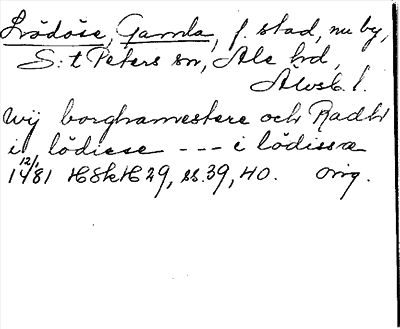 Lödöse, Gamla, f. stad, nu by,
S:t Peters sn, Ale hd,
Älvsb. l.
Wij borghamestere och Radh
i lödiese --- i lödissæ
12/1 1481 HSkH 29, ss. 39, 40. orig.